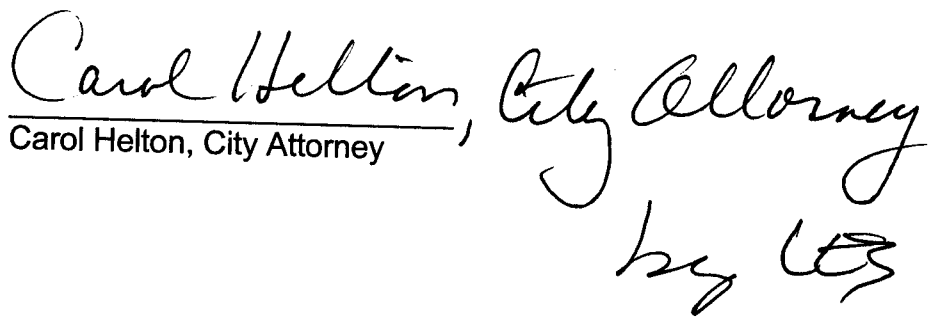 Carol Helton, City Attorney
Carol Helton, City Attorney
by